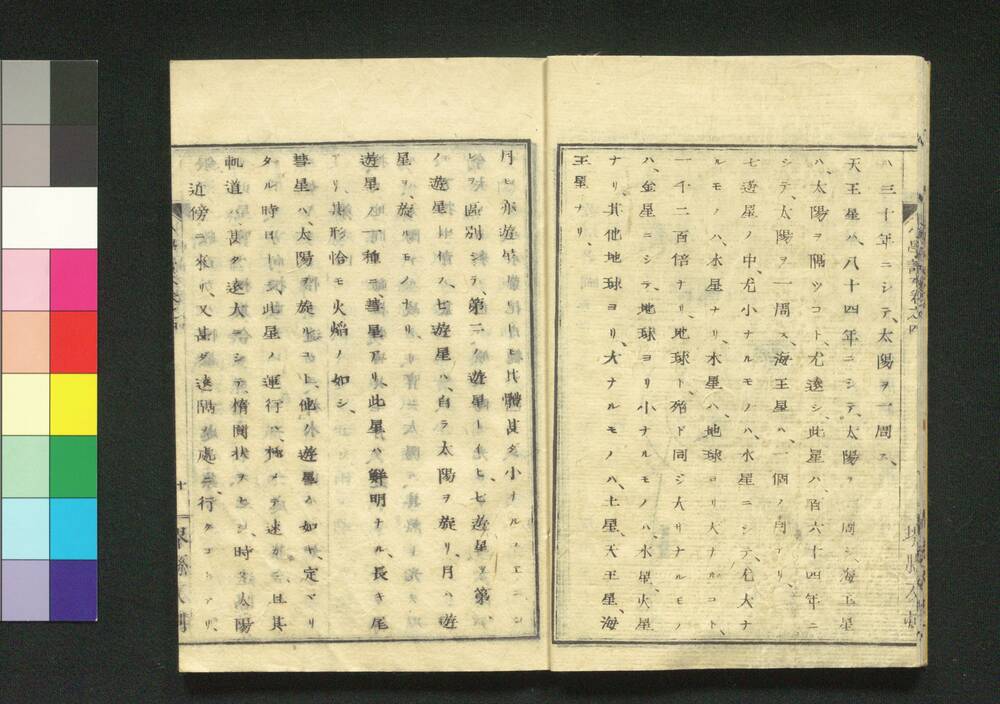 ハ三十年ニシテ、太陽ヲ一周ス、
天王星ハ、八十四年ニシテ、太陽ヲ一周シ、海王星
ハ、太陽ヲ隔ツコト、尤遠シ、此星ハ、百六十四年ニ
シテ、太陽ヲ一周ス、海王星ハ、一個ノ月アリ、
七遊星ノ中、尤小ナルモノハ、水星ニシテ、尤大ナ
ルモノハ、木星ナリ、木星ハ、地球ヨリ大ナルコト、
一千二百倍ナリ、地球ト、殆ド同ジ大サナルモノ
ハ、金星ニシテ、地球ヨリ小ナルモノハ、水星、火星
ナリ、其他地球ヨリ、大ナルモノハ、土星、天王星、海
王星ナリ、
月モ亦遊星ナレヒ其體甚ダ小ナルユエニ
区別シテ、第二ノ遊星トイヒ、七遊星ヲ第一
ノ遊星トス、七遊星ハ、自ラ太陽ヲ旋リ、月ハ遊
星ヲ旋ルモノナリ、
遊星ノ一種ニ、彗星アリ此星ハ、鮮明ナル、長キ尾
アリ、其形恰モ火焔ノ如シ、
彗星ハ、太陽ヲ旋ルコト、他ノ遊星ノ如ク、定マリ
タル時日ナシ、此星ノ運行ハ、極メテ速カニ、且其
軌道ハ、甚ダ遠大ニシテ、楕円状ヲナシ、時々太陽
近傍ニ来リ、又甚ダ遠隔ノ處ニ行クコトアリ、
十